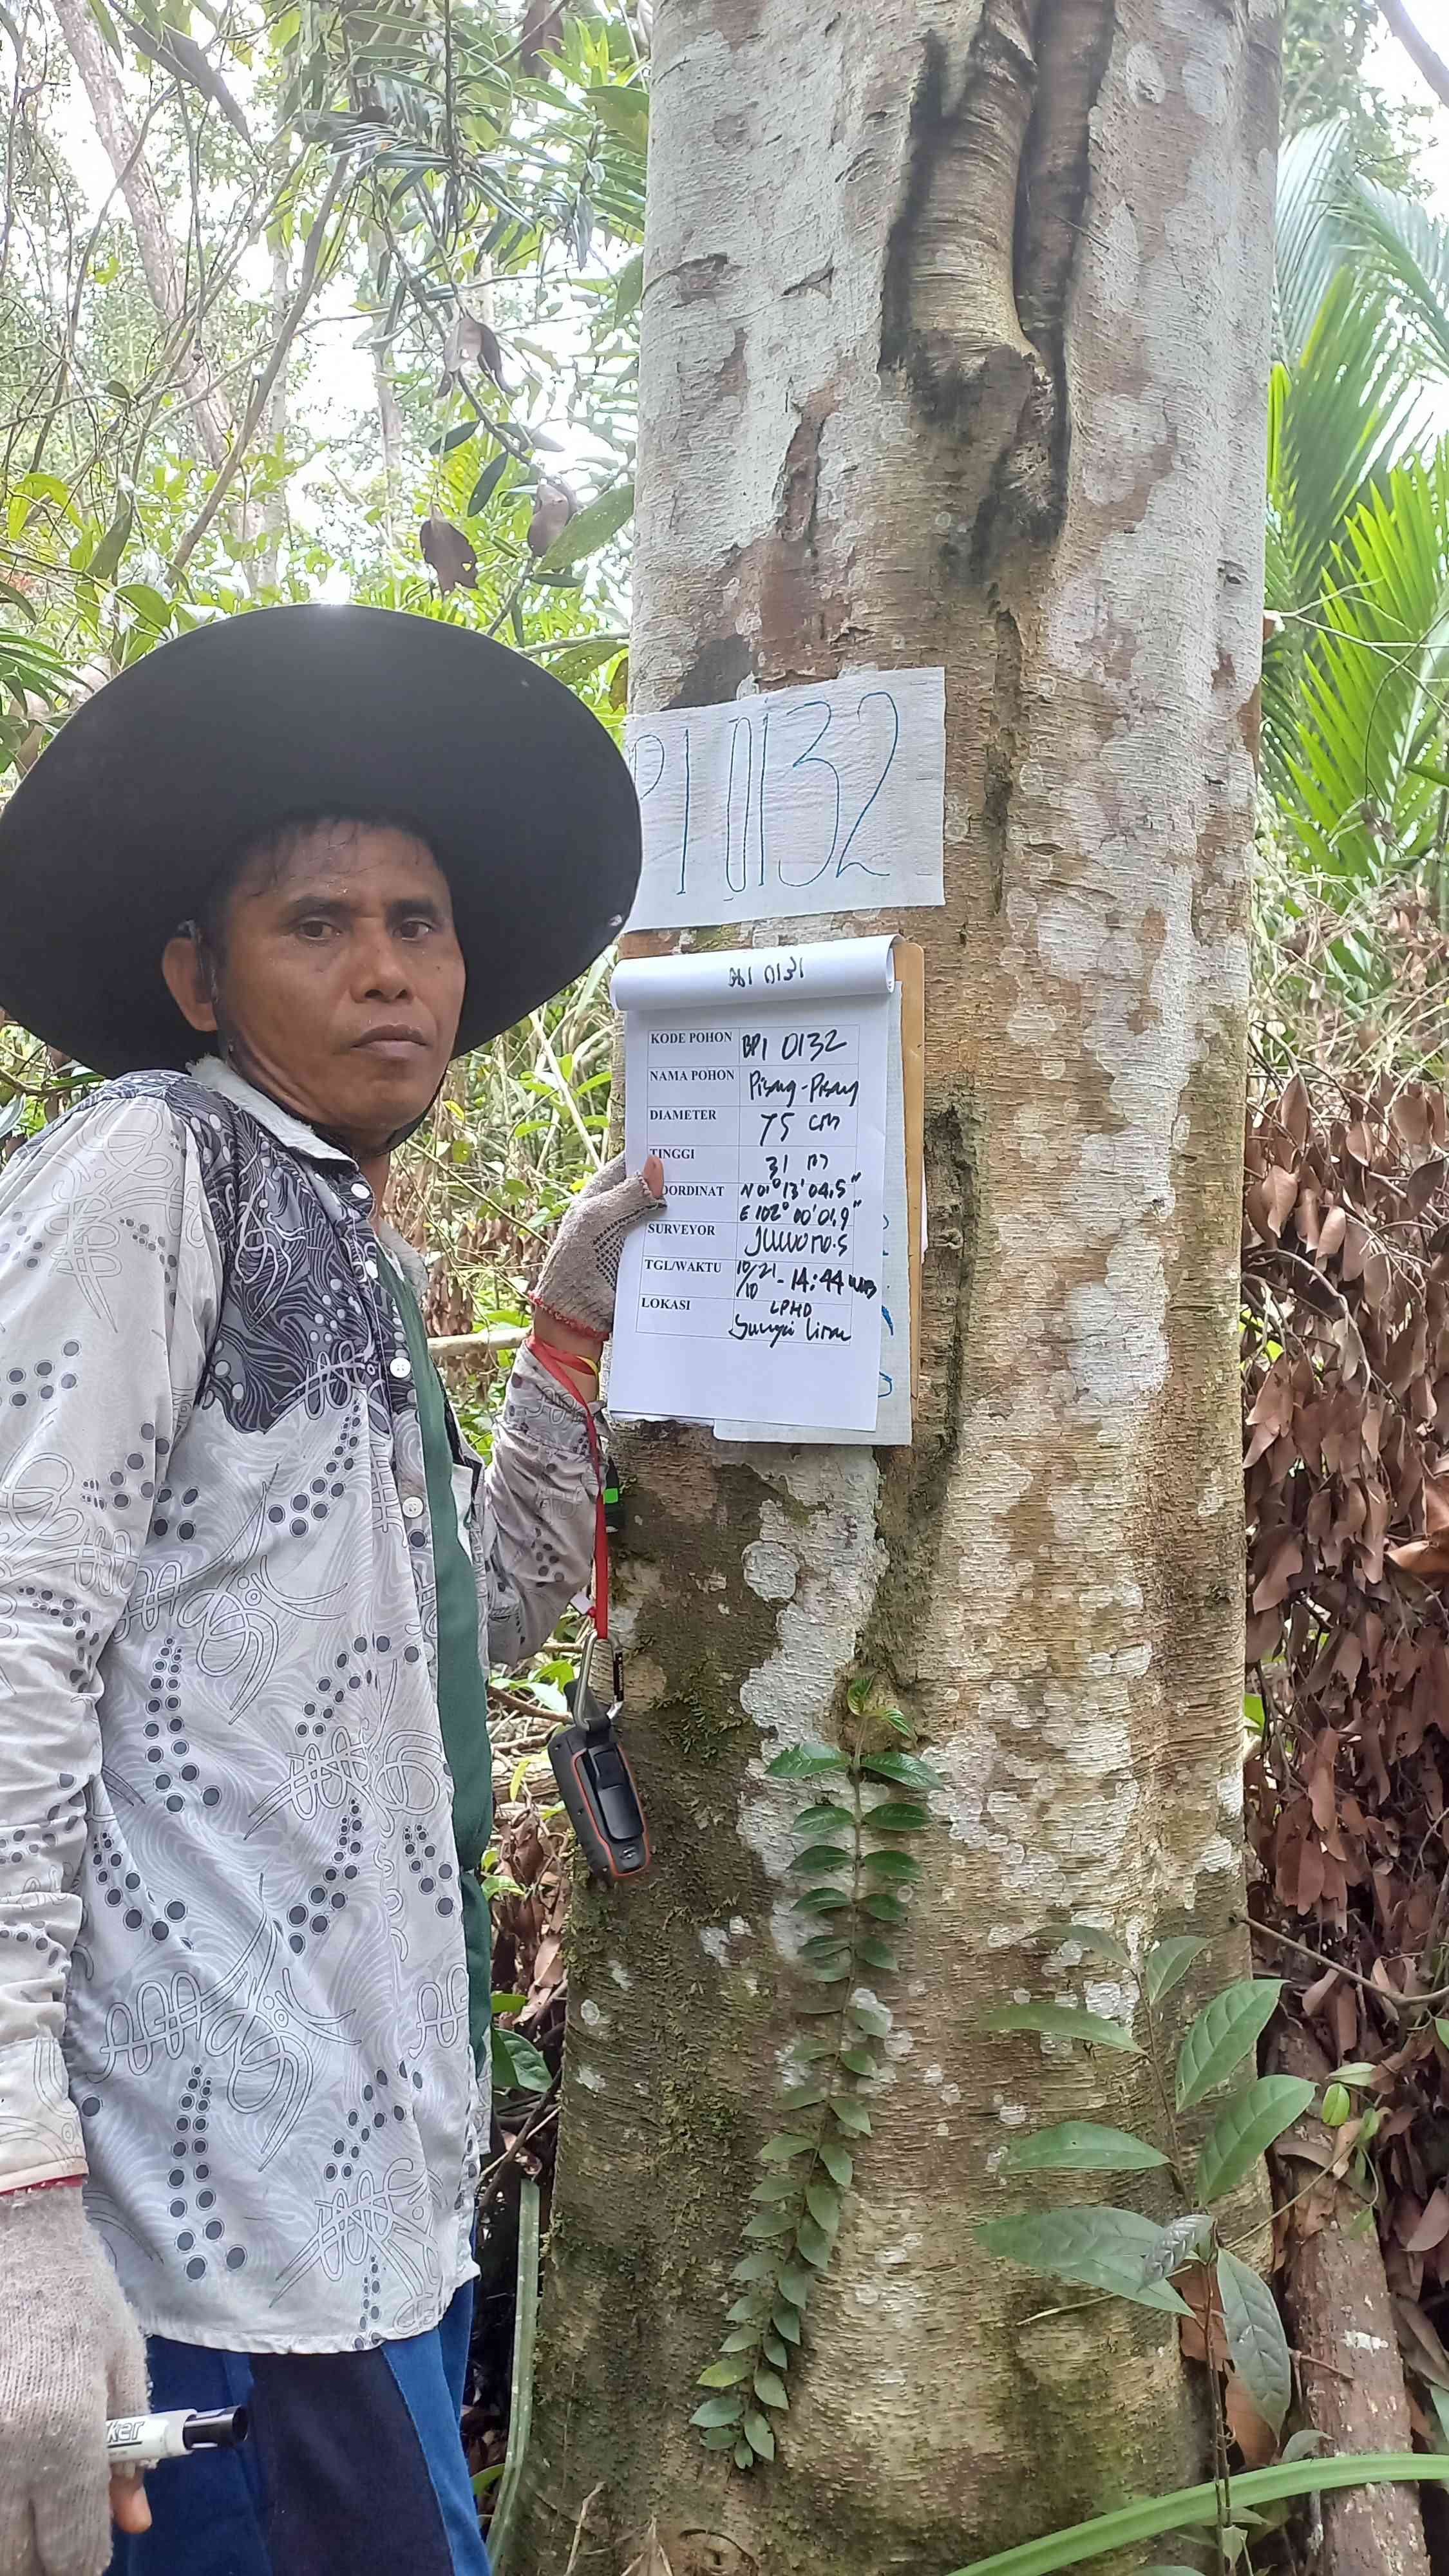 PI 0132
0131
KODE POHON BPI 0132
NAMA POHON Pisang-Pisang
DIAMETER 75 cm
TINGGI 31 m
OORDINAT N 01° 13' 04.5"
E 102° 00' 01.9"
SURVEYOR JUWONO.S
TGL/WAKTU 10/10/21 - 14:44 WIB
LOKASI LPHD
Sungai
ker